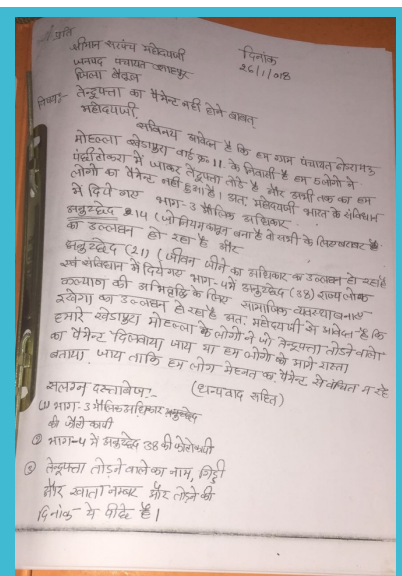 प्रति
श्रीमान सरपंच महोदयजी दिनांक
जनपद पंचायत शाहपुर 26/1/018
जिला बैतूल
विषय:- तेन्दुपत्ता का पैमेन्ट नही होने बावत्
महोदयजी,
सविनय आवेदन है कि हम ग्राम पंचायत
मोहल्ला खेडापुरा वार्ड क्र० 11 के निवासी है हम 5 लोगो ने
में जाकर तेंदुपत्ता तोडे है और अभी तक का हम
लोगों का पैमेन्ट नहीं हुआ है। अतः महोदयजी भारत के संविधान
में दिये गए भाग-3 मौलिक अधिकार
अनुच्छेद 14 (जो नियम कानून बना है वो सभी के लिए बराबर है
का उल्लघन हो रहा है और
अनुच्छेद (21) (जीवन जीने का अधिकार का उल्लघन हो रहा है
एवं संविधान में दिये गए भाग-4 में अनुच्छेद (38) राज्य लोक
कल्याण की अभिवृद्धि के लिए सामाजिक व्यवस्था बनाए
रखेगा का उल्लघन हो रहा है अतः महोदयजी से आवेदन है कि
हमारे खेडापुरा मोहल्ला के लोगों ने जो तेन्दुपत्ता तोडने वालो
का पैमेन्ट दिलवाया जाय या हम लोगो को आगे रास्ता
बताया जाय ताकि हम लोग मेहनत का पैमेन्ट से वंचित न रहे
(धन्यवाद सहित)
सलग्न दस्तावेज:-
(1) भाग-3 मौलिक अधिकार अनुच्छेद
की जेरो कापी
(2) भाग-4 में अनुच्छेद 38 की फोटोकापी
(3) तेन्दुपत्ता तोडने वाले का नाम, गिड्डी
और खाता नम्बर और तोडने की
दिनांक ये पीछे है।